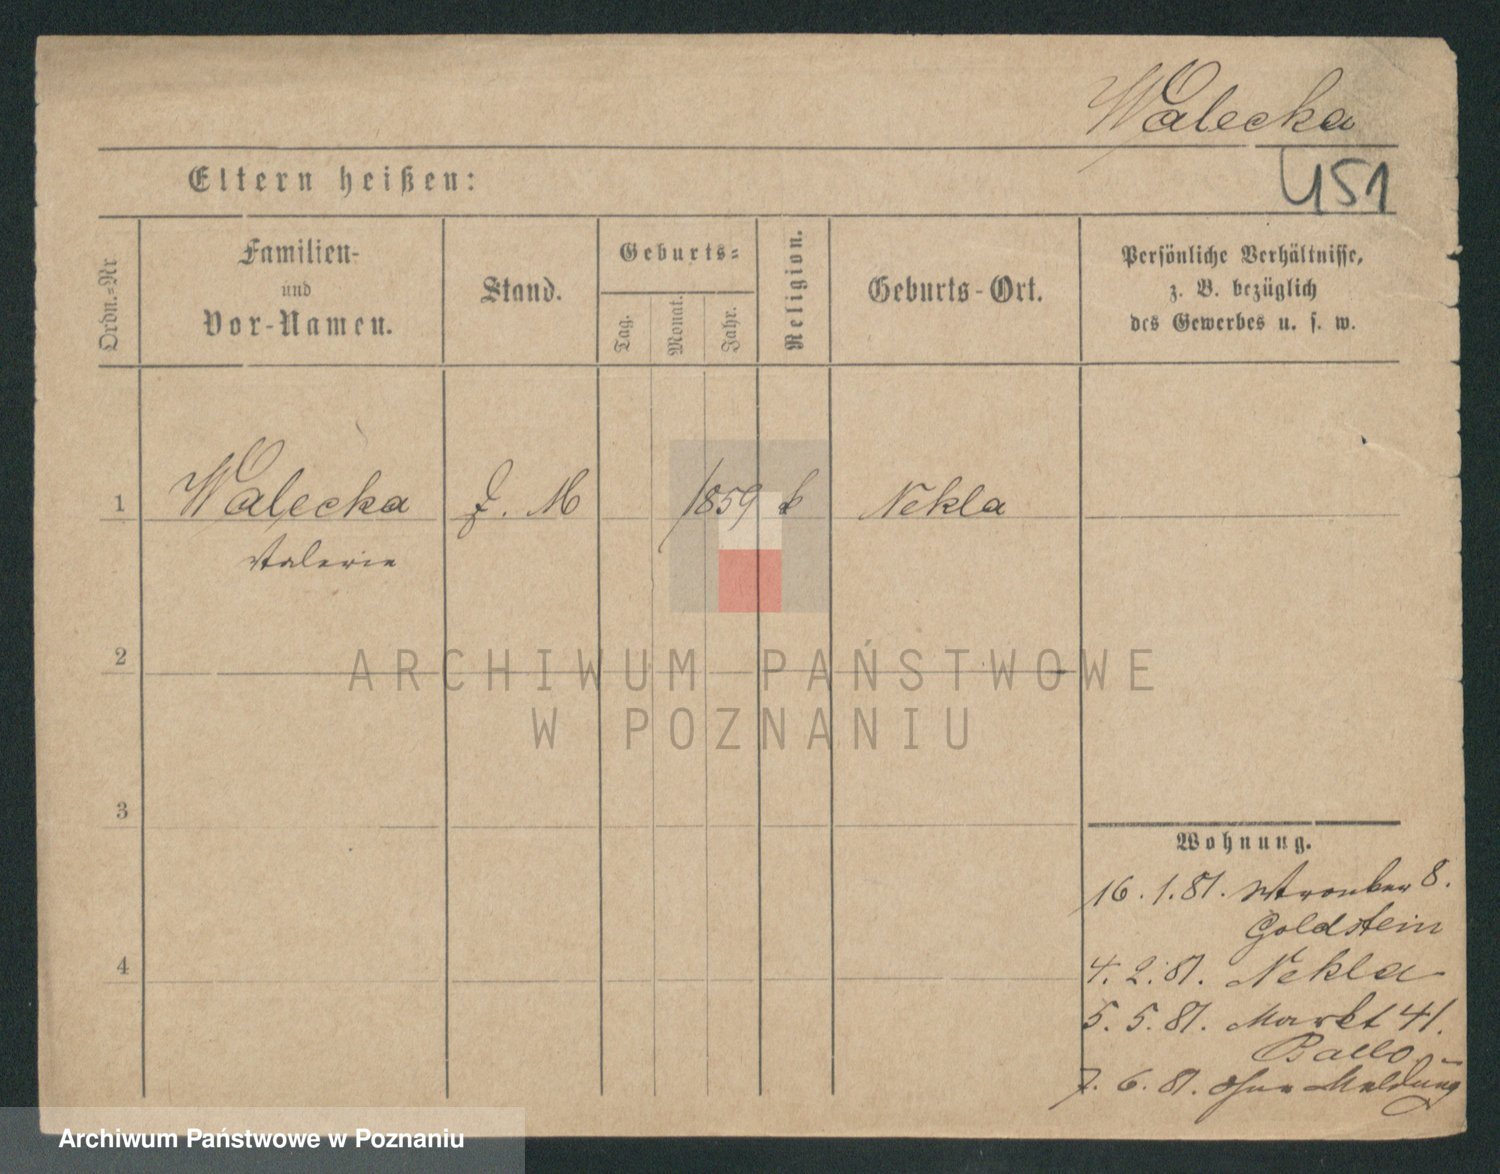 Walecka
451
Eltern heißen:
Ordn.=Nr
Familien-
und
Vor-Namen.
Stand.
Geburts=
Tag.
Monat.
Jahr.
Religion.
Geburts-Ort.
Persönliche Verhältnisse,
z. B. bezüglich
des Gewerbes u. s. w.
1 Walecka M 1859 k Nekla
Valerie
2
ARCHIWUM PAŃSTWOWE
W POZNANIU
3
Wohnung.
16.1.81. 8.
Goldstein
4
4.2.81. Nekla
5.5.81. Markt 41.
7.6.81. ohne Meldung
Archiwum Państwowe w Poznaniu